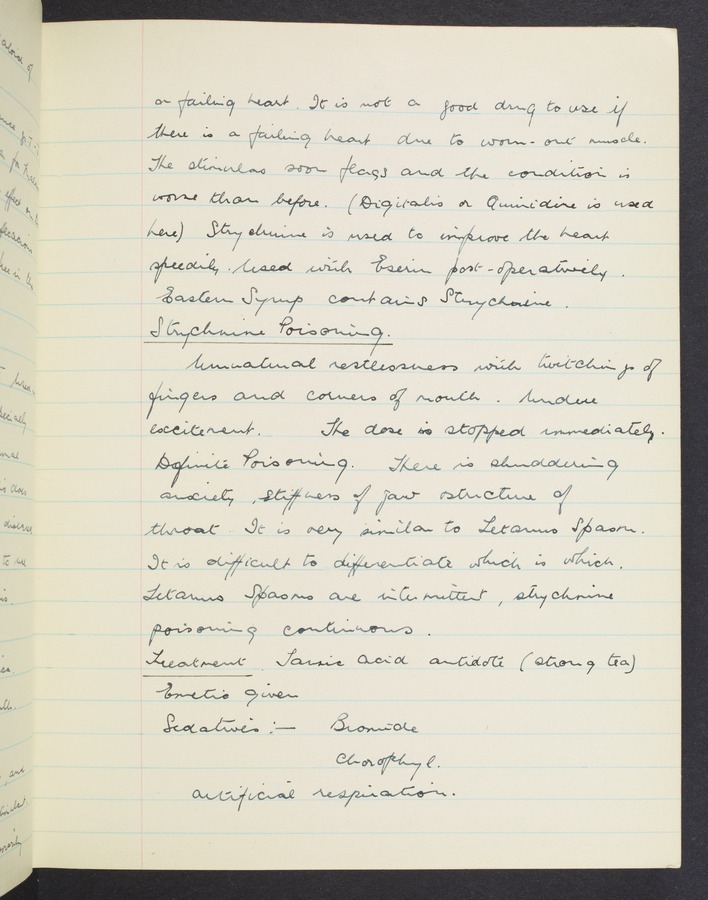 or failing heart. It is not a good drug to use if
there is a failing heart due to worn-out muscle.
The stimulus soon flags and the condition is
worse than before. (Digitalis or Quinidine is used
here) Strychnine is used to improve the heart
speedily. Used with Eserin post-operatively.
Eastern Syrup contains Strychnine.
Strychnine Poisoning.
Unnatural restlessness with twitchings of
fingers and corners of mouth. Undue
excitement. The dose is stopped immediately.
Definite Poisoning. There is shuddering
anxiety, stiffness of jaw ostructure of
throat. It is very similar to Tetanus Spasm.
It is difficult to differentiate which is which.
Tetanus Spasms are intermittent, strychnine
poisoning continuous.
Treatment. Tannic acid antidote (strong tea)
Emetic given
Sedatives:- Bromide
Chorophyl.
artificial respiration.